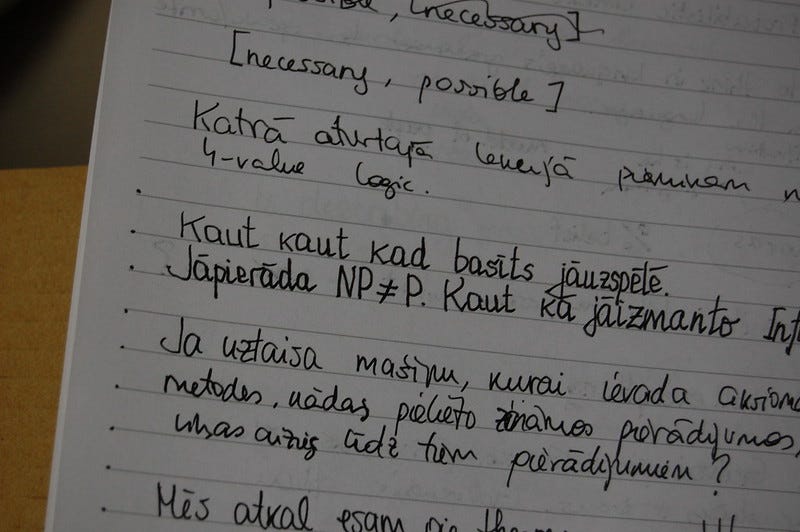 , (necessary]
[necessary, possible]
Katrā atvērtajā pieminam
4-value logic.
Kaut kaut kad basīts jāuzspēlē.
Jāpierāda NP≠P. Kaut kā jāizmanto
Ja uztaisa mašīnu, kurai ievada
metodes, kādas pielieto zināmos pierādījumos,
līdz tiem pierādījumiem?
Mēs atkal esam